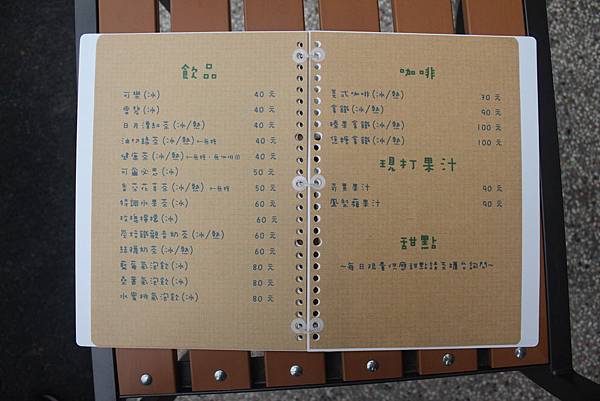 飲品
可樂(冰) 40 元
雪碧(冰) 40 元
日月潭紅茶(冰/熱) 40 元
油切綠茶(冰/熱)←無糖 40 元
健康茶(冰/熱)←無糖、無咖啡因 40 元
可爾必思(冰) 50 元
香茨花草茶(冰/熱)←無糖 50 元
特調水果茶(冰) 60 元
玫瑰檸檬(冰) 60 元
炭焙鐵觀音奶茶(冰/熱) 60 元
紐穗奶茶(冰/熱) 60 元
藍莓氣泡飲(冰) 80 元
桑葚氣泡飲(冰) 80 元
水蜜桃氣泡飲(冰) 80 元
咖啡
美式咖啡(冰/熱) 70 元
拿鐵(冰/熱) 90 元
榛果拿鐵(冰/熱) 100 元
焦糖拿鐵(冰/熱) 100 元
現打果汁
奇異果汁 90 元
鳳梨蘋果汁 90 元
甜點
~每日限量供應甜點請至櫃台詢問~